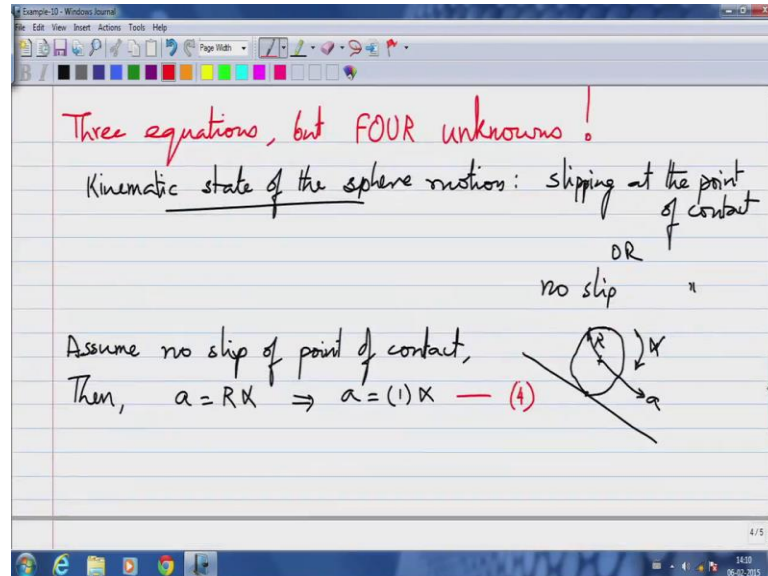 Example-10 - Windows Journal
File Edit View Insert Actions Tools Help
Page Width
B I
Three equations, but FOUR unknowns !
Kinematic state of the sphere motion: slipping at the point
of contact
OR
no slip "
Assume no slip of point of contact,
Then, a = Rα ⇒ a = (1)α — (4)
R
α
a
4/5
14:10
06-02-2015